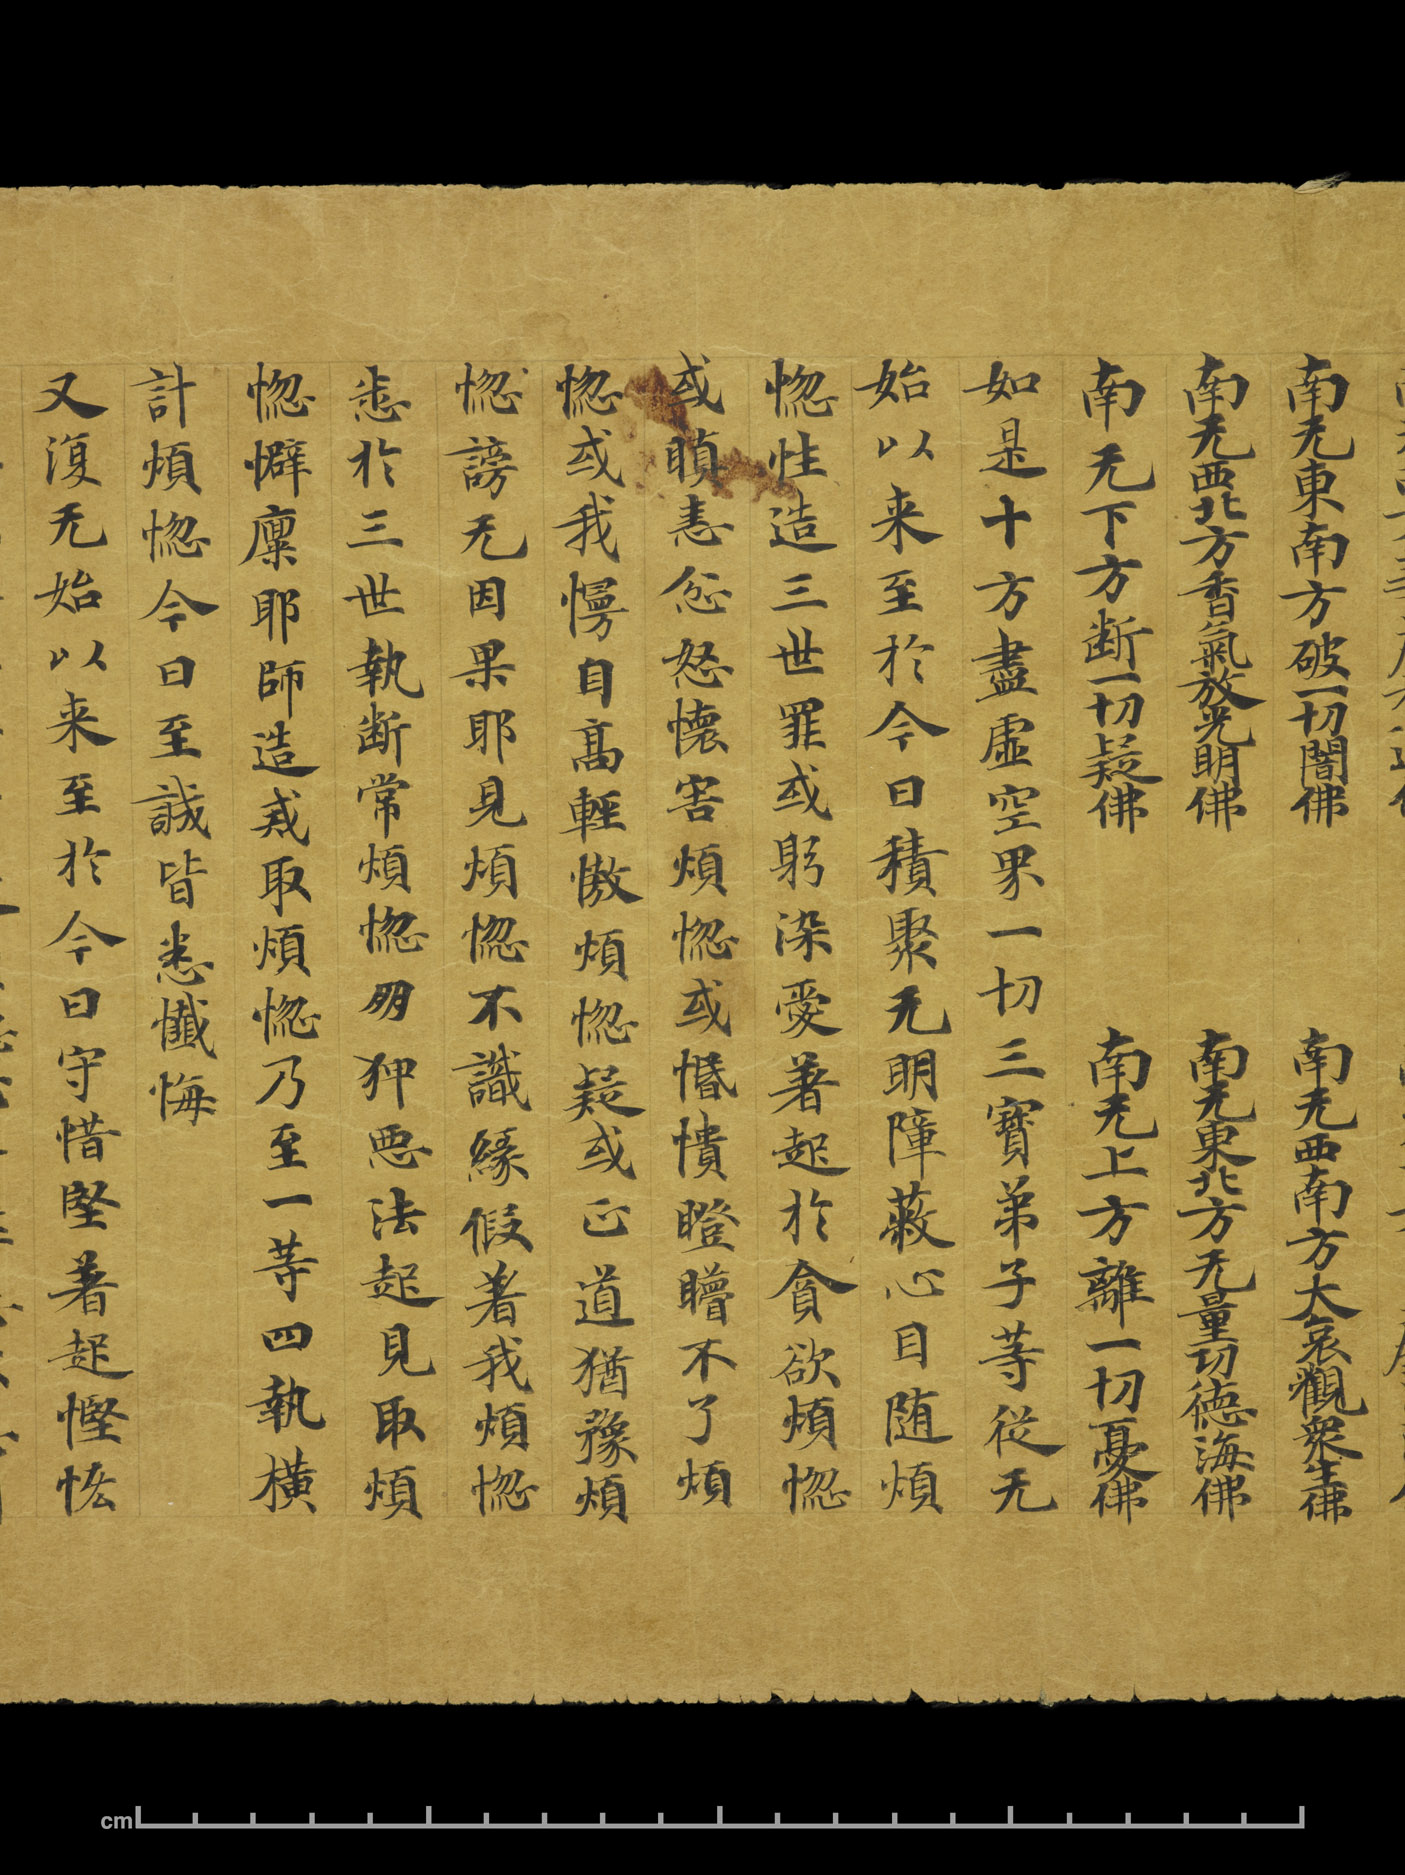 南无東南方破一切闇佛　南无西南方大哀觀衆生佛
南无西北方香氣放光明佛　南无東北方无量切德海佛
南无下方断一切疑佛　南无上方離一切憂佛
如是十方盡虛空界一切三寶弟子等從无
始以来至於今日積聚无明障蔽心目随煩
惚性造三世罪或躬染愛著起於貪欲煩惚
或瞋恚忿怒懷害煩惚或惛憒瞪瞢不了煩
惚或我慢自髙輕慠煩惚疑或正道猶豫煩
惚謗无因果耶見煩惚不識緣假著我煩惚
迷於三世執断常煩惚朋狎悪法起見取煩
惚僻禀耶師造戒取煩惚乃至一等四執橫
計煩惚今日至誠皆悉懺悔
又復无始以来至於今日守惜堅著起慳悋
cm